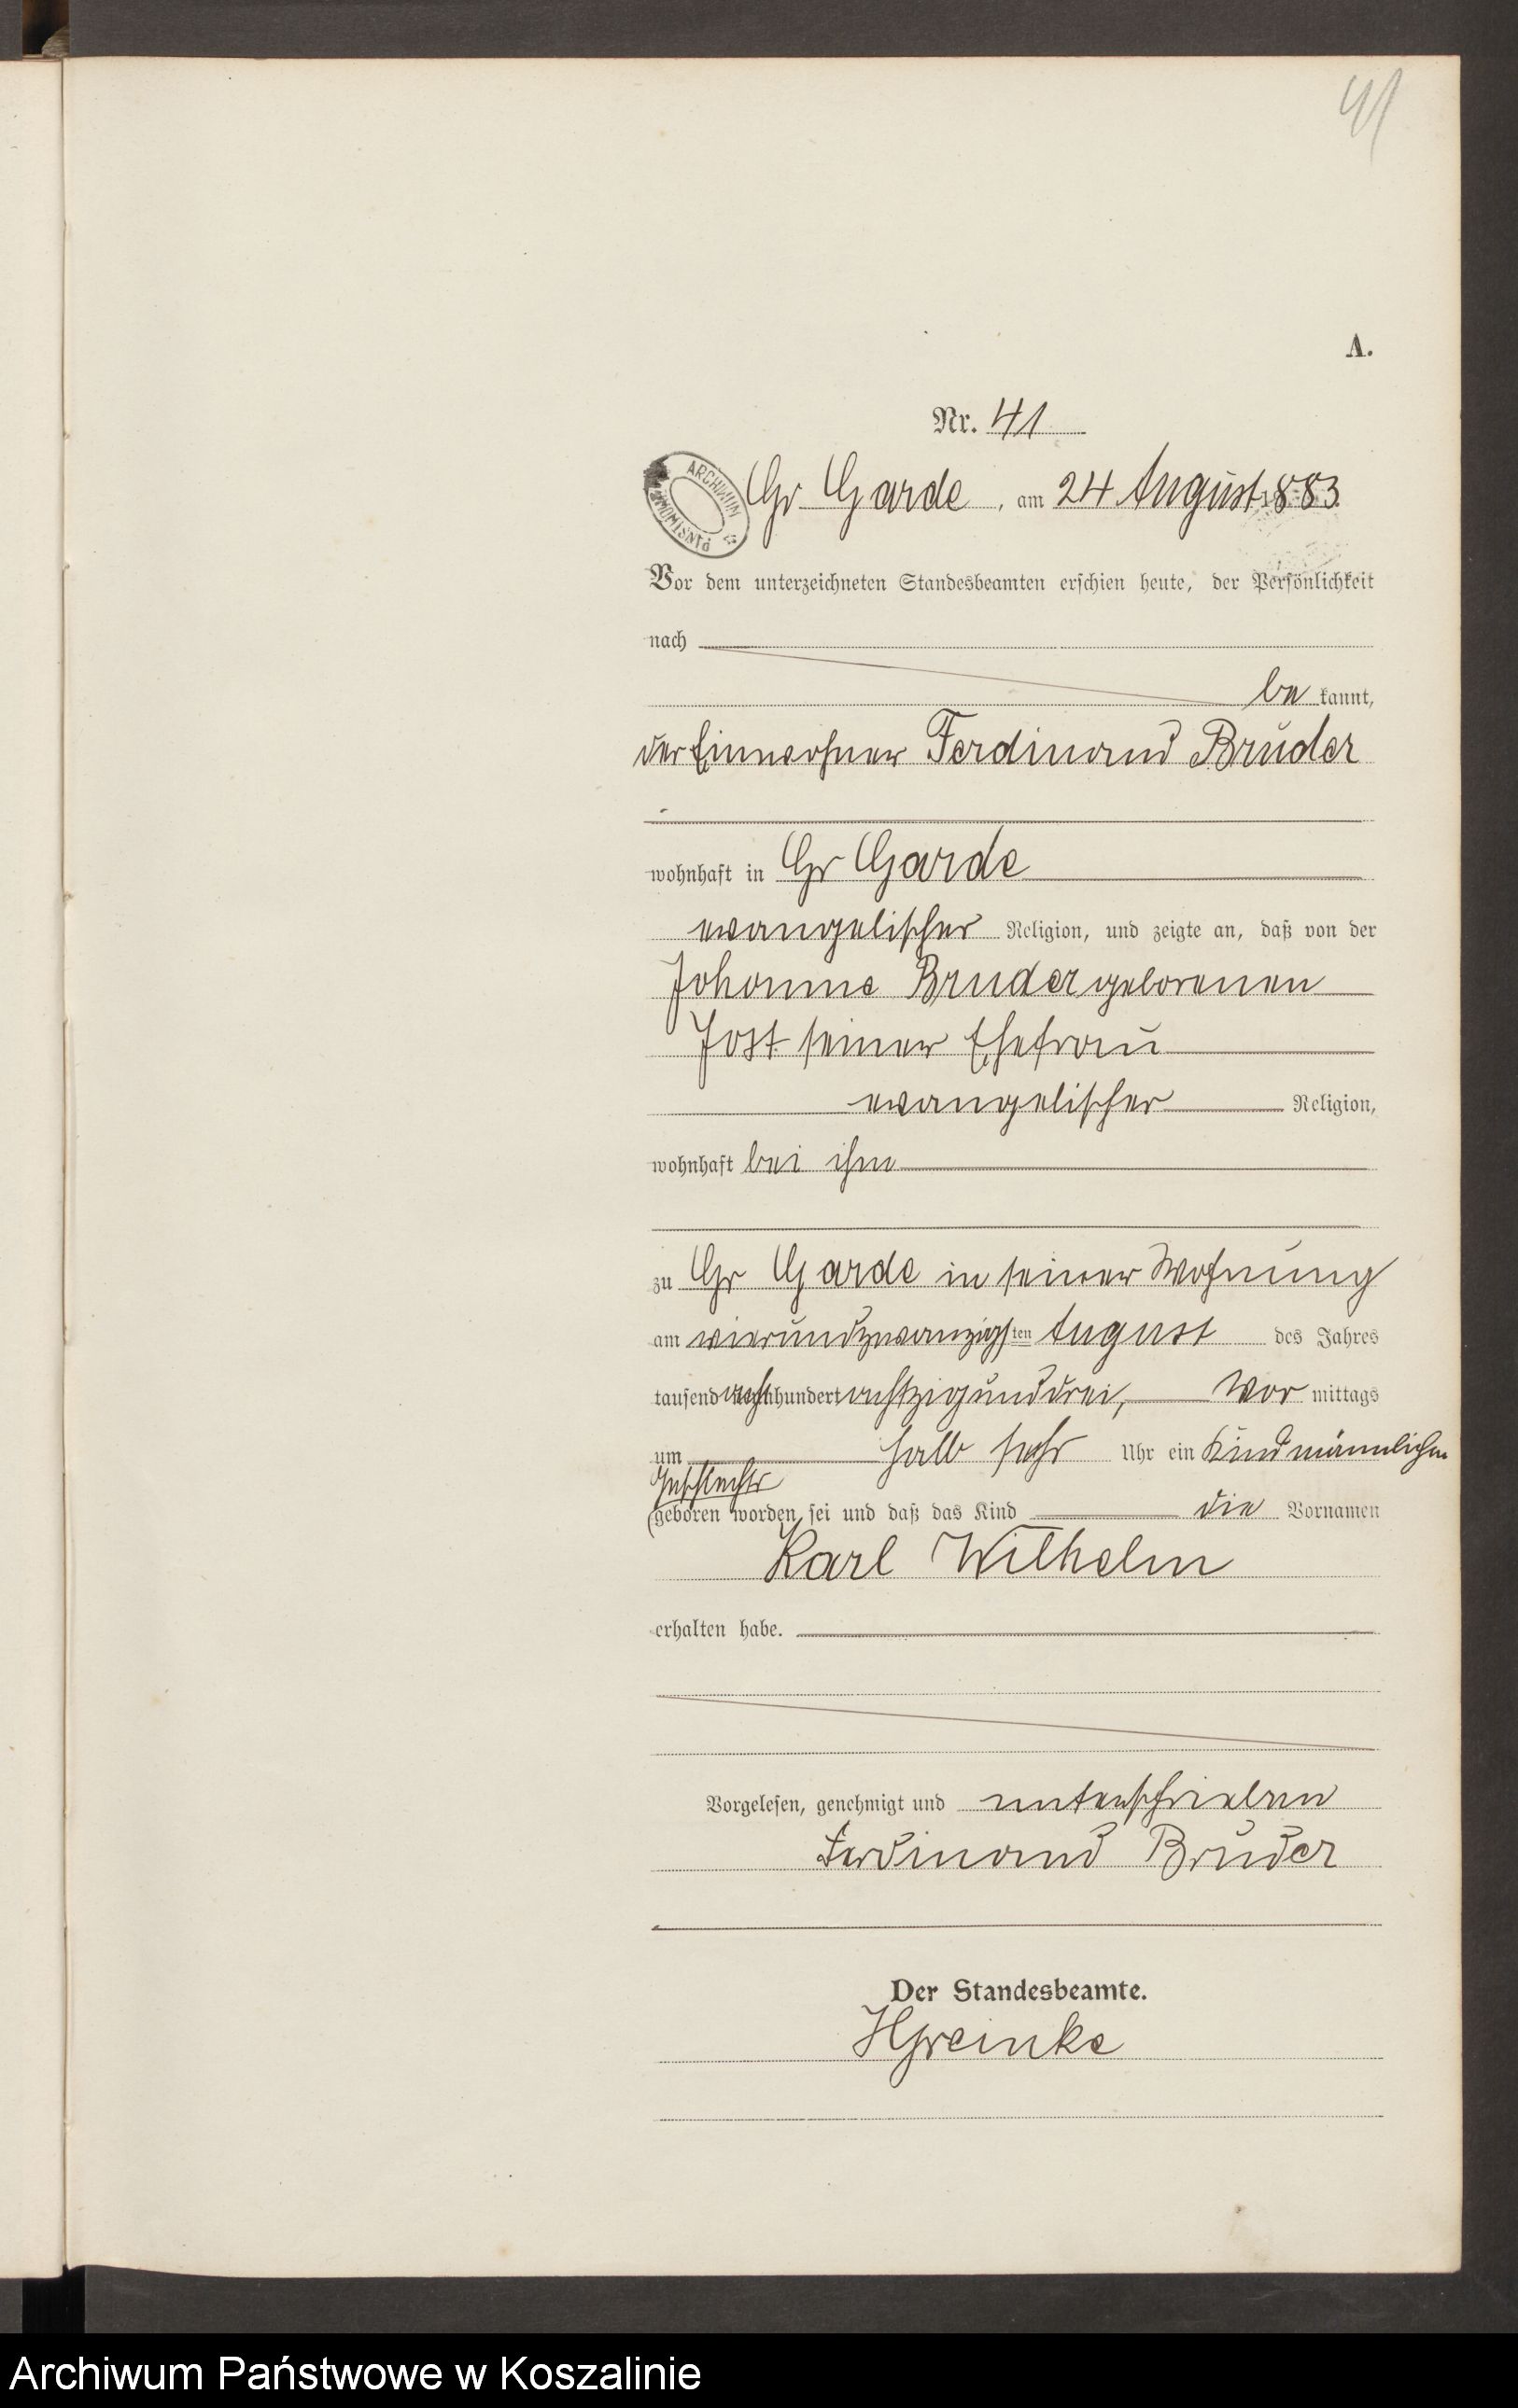 41
A.
Nr. 41
ARCHIWUM PAŃSTWOWE
Gr. Garde, am 24 August 1883.
Vor dem unterzeichneten Standesbeamten erschien heute, der Persönlichkeit
nach
be kannt,
der Einwohner Ferdinand Bruder
wohnhaft in Gr Garde
evangelischer Religion, und zeigte an, daß von der
Johanne Bruder geborenen
Jost seiner Ehefrau
evangelischer Religion,
wohnhaft bei ihm
zu Gr Garde in seiner Wohnung
am vierundzwanzigsten August des Jahres
tausend acht hundert achtzigunddrei, Vor mittags
um halb sechs Uhr ein Kind männlichen
Geschlechts
geboren worden sei und daß das Kind die Vornamen
Karl Wilhelm
erhalten habe.
Vorgelesen, genehmigt und unterschrieben
Ferdinand Bruder
Der Standesbeamte.
HGreinke
Archiwum Państwowe w Koszalinie